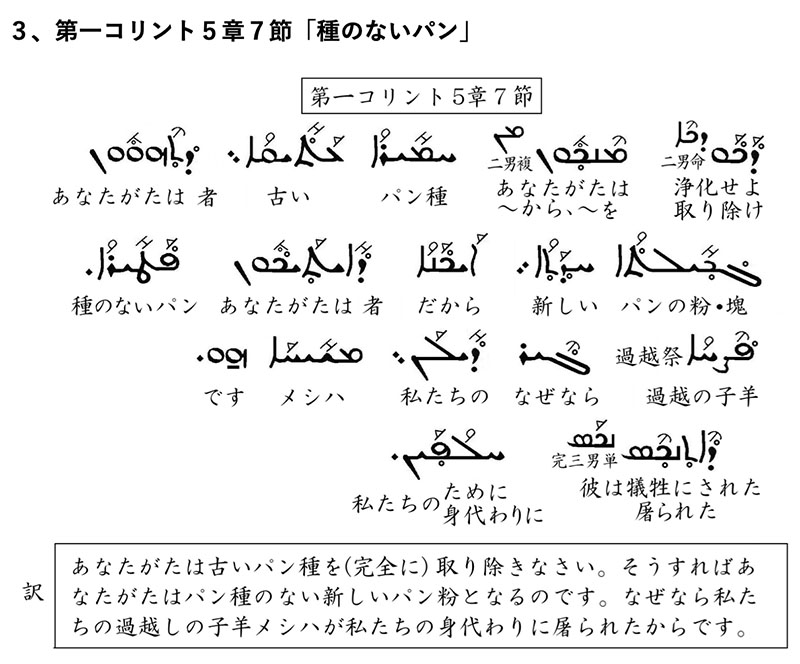 3、第一コリント5章7節「種のないパン」
第一コリント5章7節
ܕܟܘ ܕܟܐ ܡܢܟܘܢ ܡܢ ܚܡܝܪܐ ܥܬܝܩܐ ܕܬܗܘܘܢ
二男複 二男命
あなたがたは 者 古い パン種 あなたがたは 浄化せよ
〜から、〜を 取り除け
ܓܒܝܠܬܐ ܚܕܬܐ ܐܝܟܢܐ ܕܐܝܬܝܟܘܢ ܦܛܝܪܐ
種のないパン あなたがたは 者 だから 新しい パンの粉・塊
ܦܨܚܐ ܓܝܪ ܕܝܠܢ ܡܫܝܚܐ ܗܘ
過越祭
です メシハ 私たちの なぜなら 過越の子羊
ܕܐܬܢܟܣ ܢܟܣ ܚܠܦܝܢ
完三男単
私たちの ために 彼は犠牲にされた
身代わりに 屠られた
訳
あなたがたは古いパン種を(完全に)取り除きなさい。そうすればあ
なたがたはパン種のない新しいパン粉となるのです。なぜなら私た
ちの過越しの子羊メシハが私たちの身代わりに屠られたからです。